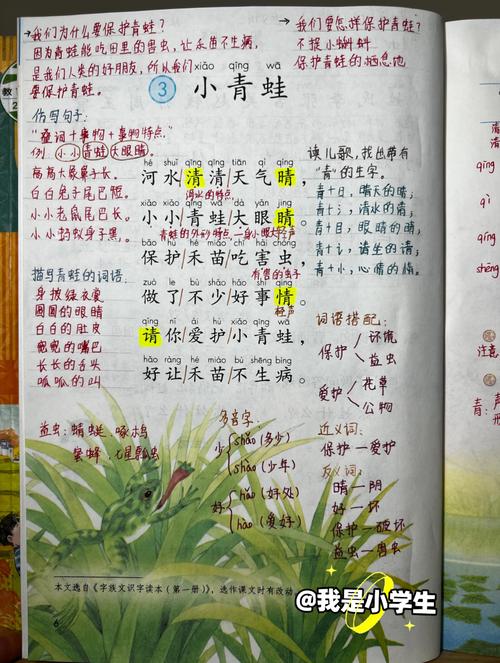 →我们为什么要保护青蛙?
因为青蛙能吃田里的害虫,让禾苗不生病,
是我们人类的好朋友,所从我们
要保护青蛙。
→我们要怎样保护青蛙?
不捉小蝌蚪
保护青蛙的栖息地
xiǎo qīng wā
3 小青蛙
仿写句子:
"叠词+事物+事物特点."
例 小小青蛙大眼睛。
高高大象鼻子长。
白白兔子尾巴短。
小小老鼠尾巴长。
小小蚂蚁身子黑。
描写青蛙的词语:
身披绿衣裳
圆圆的眼睛
白白的肚皮
宽宽的嘴巴
长长的舌头
呱呱的叫
hé shuǐ qīng qīng tiān qì qíng
河水/清清/天气/晴,
河水的特点
xiǎo xiǎo qīng wā dà yǎn jīng
小小/青蛙/大眼睛。
青蛙的外形特点——身小眼大轻声
bǎo hù hé miáo chī hài chóng
保护/禾苗/吃害虫,
有害的虫子
zuò le bù shǎo hǎo shì qing
做了/不少/好事情。
轻声
qǐng nǐ ài hù xiǎo qīng wā
请你/爱护/小青蛙,
hǎo ràng hé miáo bù shēng bìng
好让/禾苗/不生病。
读儿歌,找出带有
"青"的生字。
青+日,晴天的晴;
青+氵,清水的清;
青+目,眼睛的睛;
青+讠,请坐的请;
青+忄,心情的情。
词语搭配:
保护 环境
益虫
爱护 花草
公物
近义词:
保护—爱护
反义词:
晴—阴
好—坏
保护—破坏
益虫—害虫
多音字:
少 shǎo(多少)
shào(少年)
好 hǎo(好处)
hào(爱好)
益虫:蜻蜓、啄木鸟
蜜蜂、七星瓢虫
本文选自《字族文识字读本(第一册)》,选作课文时有改动。
6
@我是小学生